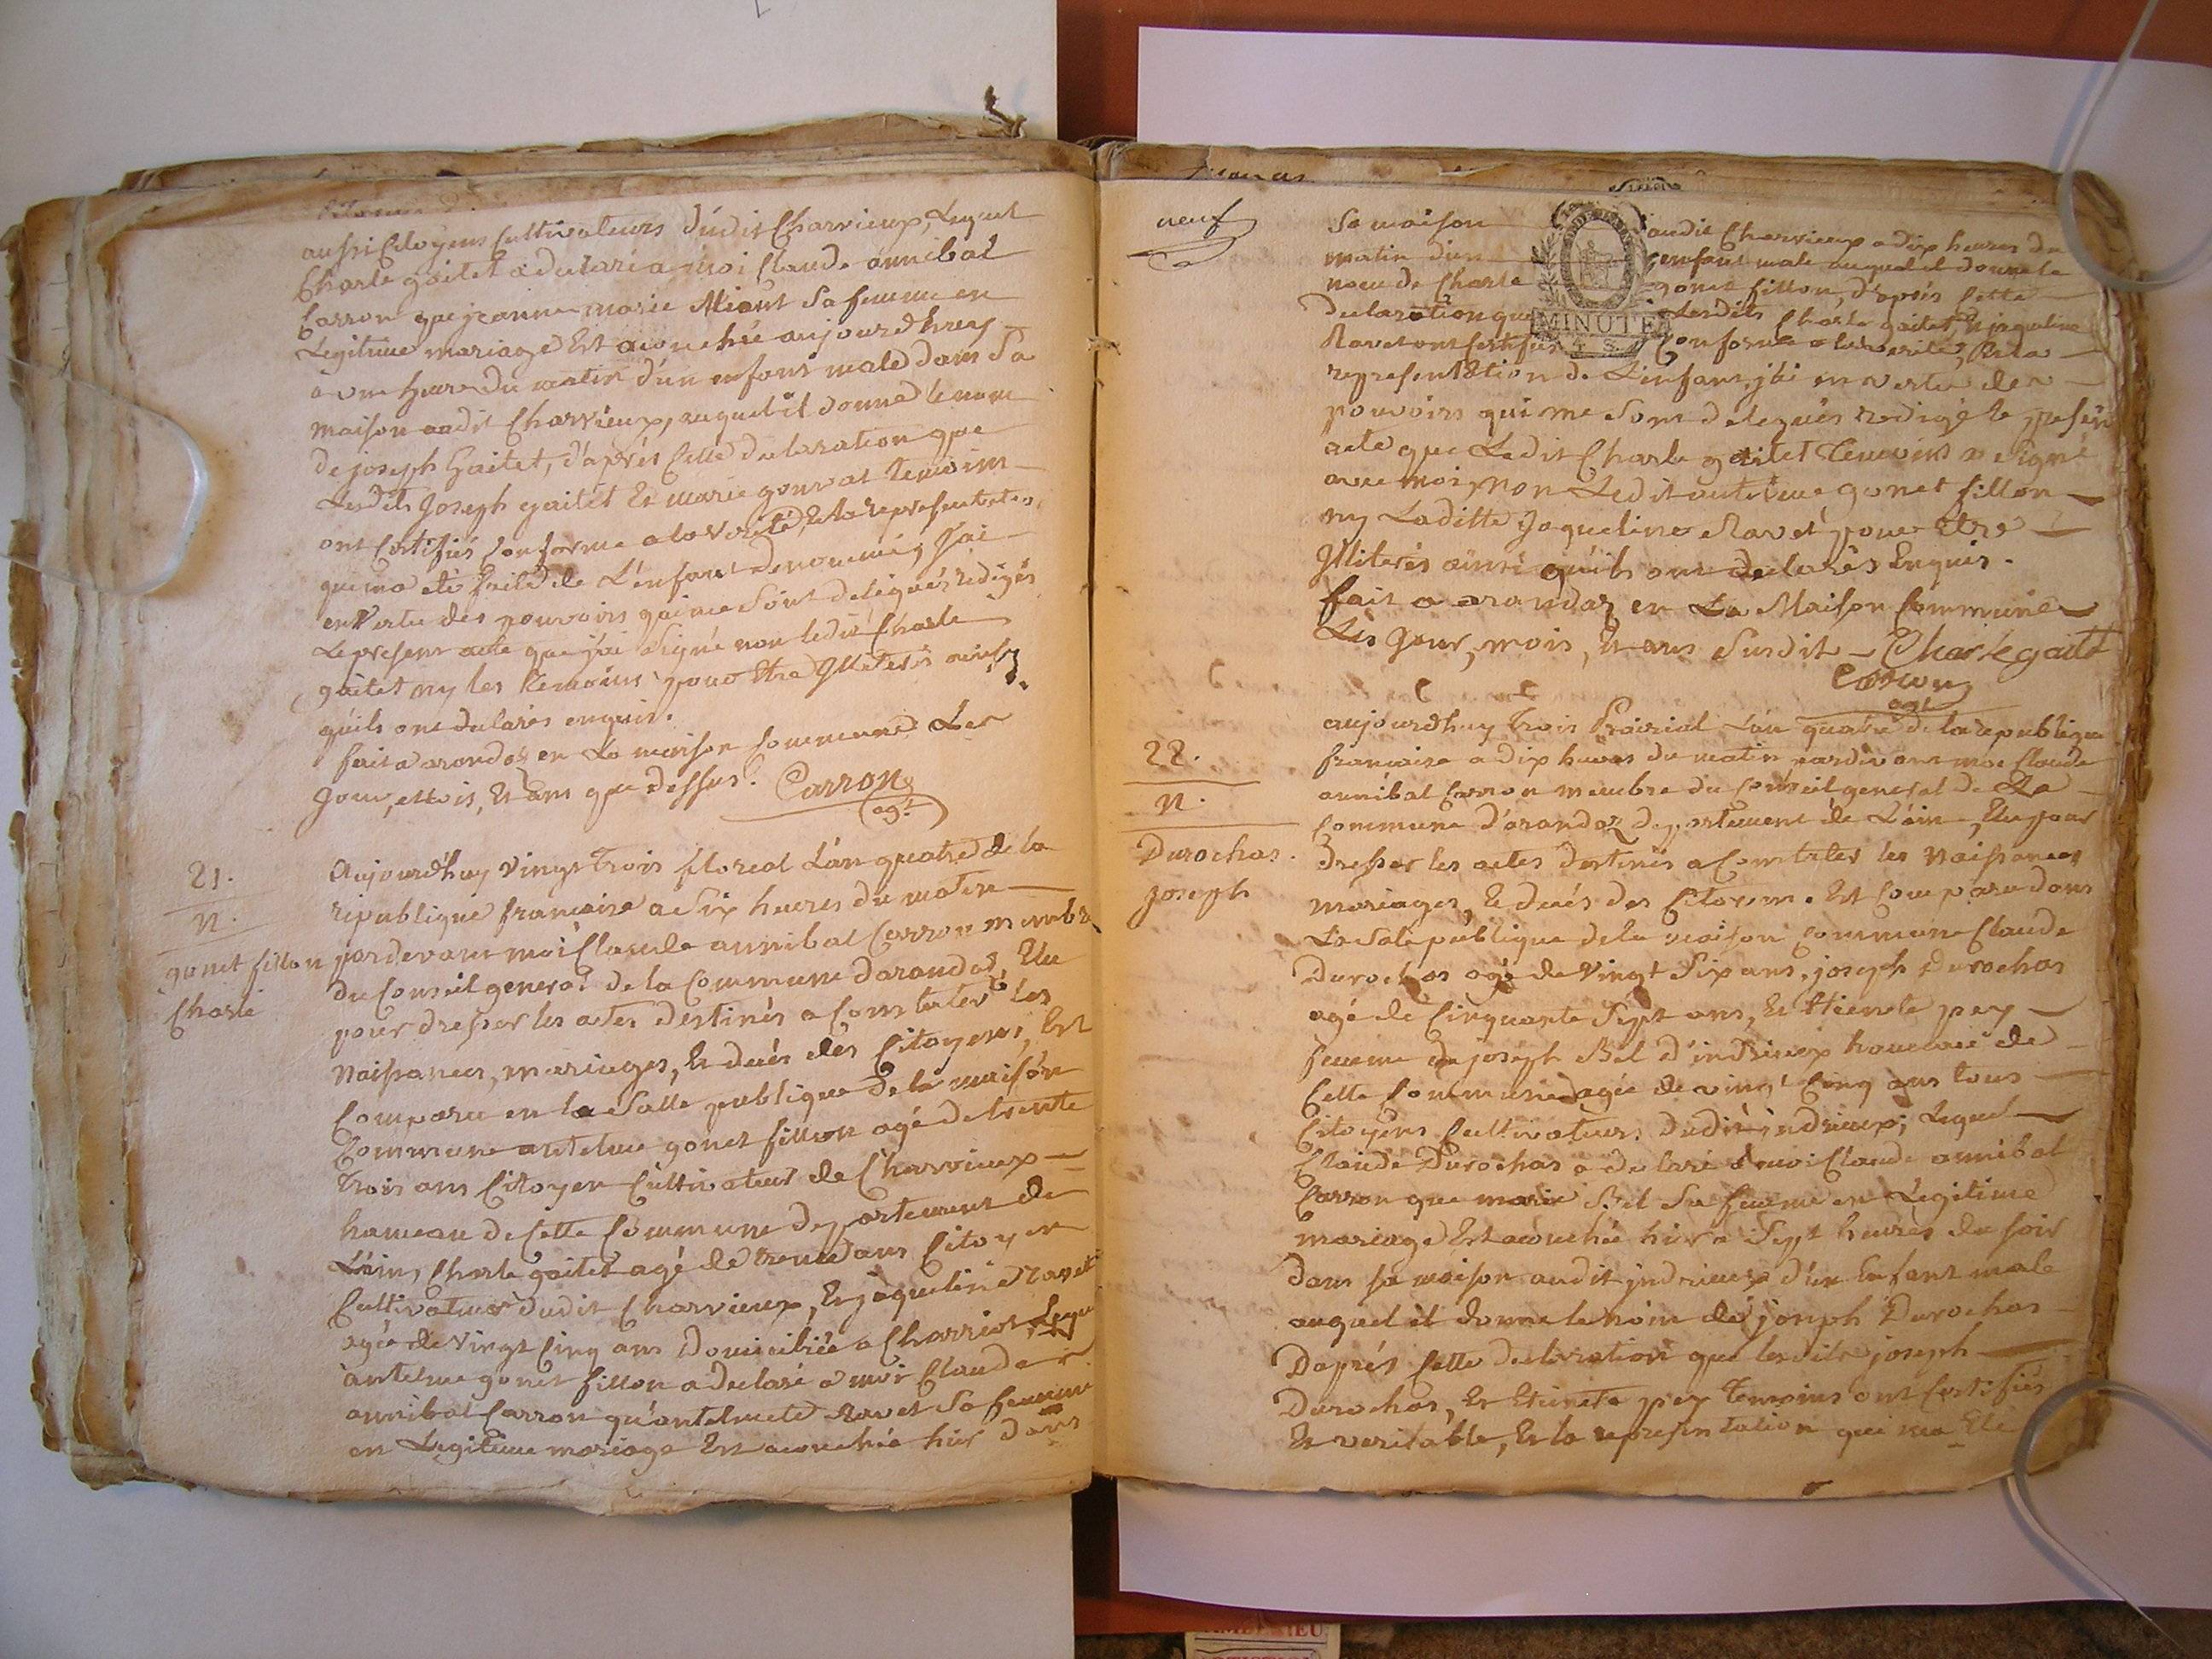 aussi Citoyens Cultivateurs dudit Charvieux, Lequel
Charle gaitet a declaré a moi Claude annibal
Carron que jeanne marie Miant sa femme en
Legitime mariage Est acouchée aujourdhuy
a une heure du matin d'un enfant male dans sa
maison audit Charvieux, auquel il donne le nom
de joseph Gaitet, d'aprés Cette declaration que
Lesdits Joseph gaitet Et marie gonvat temoins
ont Certifiés Conforme a la Verité, Et la representation
qui ma eté faite de L'enfant denommé, J'ai
en Vertu des pouvoirs qui me sont delegués redigés
Le present acte que j'ai signé non ledit Charle
gaitet ny les temoins pour Etre Illiterés ainsy
qu'ils ont declarés enquis.
fait a arandas en La maison Commune Les
Jour, mois, Et ans que dessus. Carron
agt
21.
n.
gonet fillon
Charle
Aujourd'huy vingt trois floreal L'an quatre de la
republique francaise a six heures du matin
pardevant moi Claude annibal Carron membre
du Conseil general de la Commune darandas, Elu
pour dresser les actes destinés a Constater les
Naissances, mariages, Et decés des Citoyens, Est
Comparu en la Salle publique de la maison
Commune antelme gonet fillon agé de trente
trois ans Citoyen Cultivateur de Charvieux
hameau de Cette Commune departement de
L'ain, Charle gaitet agé de trente ans Citoyen
Cultivateur dudit Charvieux, Et jaqueline ravet
agée de Vingt Cinq ans Domiciliée a Charriot, Lequel
antelme gonet fillon a declaré a moi Claude
annibal Carron qu'antelmete Ravet Sa femme
en Legitime mariage Est acouchée hier dans
neuf
Sa maison audit Charvieux a dix heures du
matin d'un enfant male auquel il donne le
nom de Charle gonet fillon, d'aprés Cette
declaration que Lesdits Charle gaitet, Et jaqueline
Ravet ont Certifiés Conforme a la verité, Et la
representation de L'enfant, j'ai en vertu des
pouvoirs qui me sont delegués redigé le present
acte que Ledit Charle gaitet Temoins a signé
avec moi, non Ledit antelme gonet fillon
ny Laditte Jaqueline Ravet pour Etre
Illiterés ainsi qu'ils ont declarés Enquis.
fait a arandas en La Maison Commune
Les Jour, mois, Et ans Susdit Charle gaitet
Carron
agt
MINUTE
22.
n.
Durochas.
joseph
aujourdhuy trois Prairial L'an quatre de la republique
francaise a dix heures du matin pardevant moi Claude
annibal Carron membre du Conseil general de La
Commune d'arandas departement de L'ain, Elu pour
dresser les actes destinés a Constater les Naissances
mariages, Et decés des Citoyens. Est Comparu dans
La Sale publique de la maison Commune Claude
Durochas agé de Vingt Six ans, joseph Durochas
agé de Cinquante Sept ans, Et Etienete pey
femme de joseph Bel d'indrieux hameau de
Cette Commune agée de vingt Cinq ans tous
Citoyens Cultivateurs dudit indrieux, Lequel
Claude Durochas a declaré a moi Claude annibal
Carron que marie Bel Sa femme en Legitime
mariage Est acouchée hier a Sept heures du soir
dans sa maison audit jndrieux d'un Enfant male
auquel il donne le nom de joseph Durochas
Daprés Cette declaration que lesdits joseph
Durochas, Et Etienete pey temoins ont Certifiés
Et veritable, Et la representation qui ma Eté